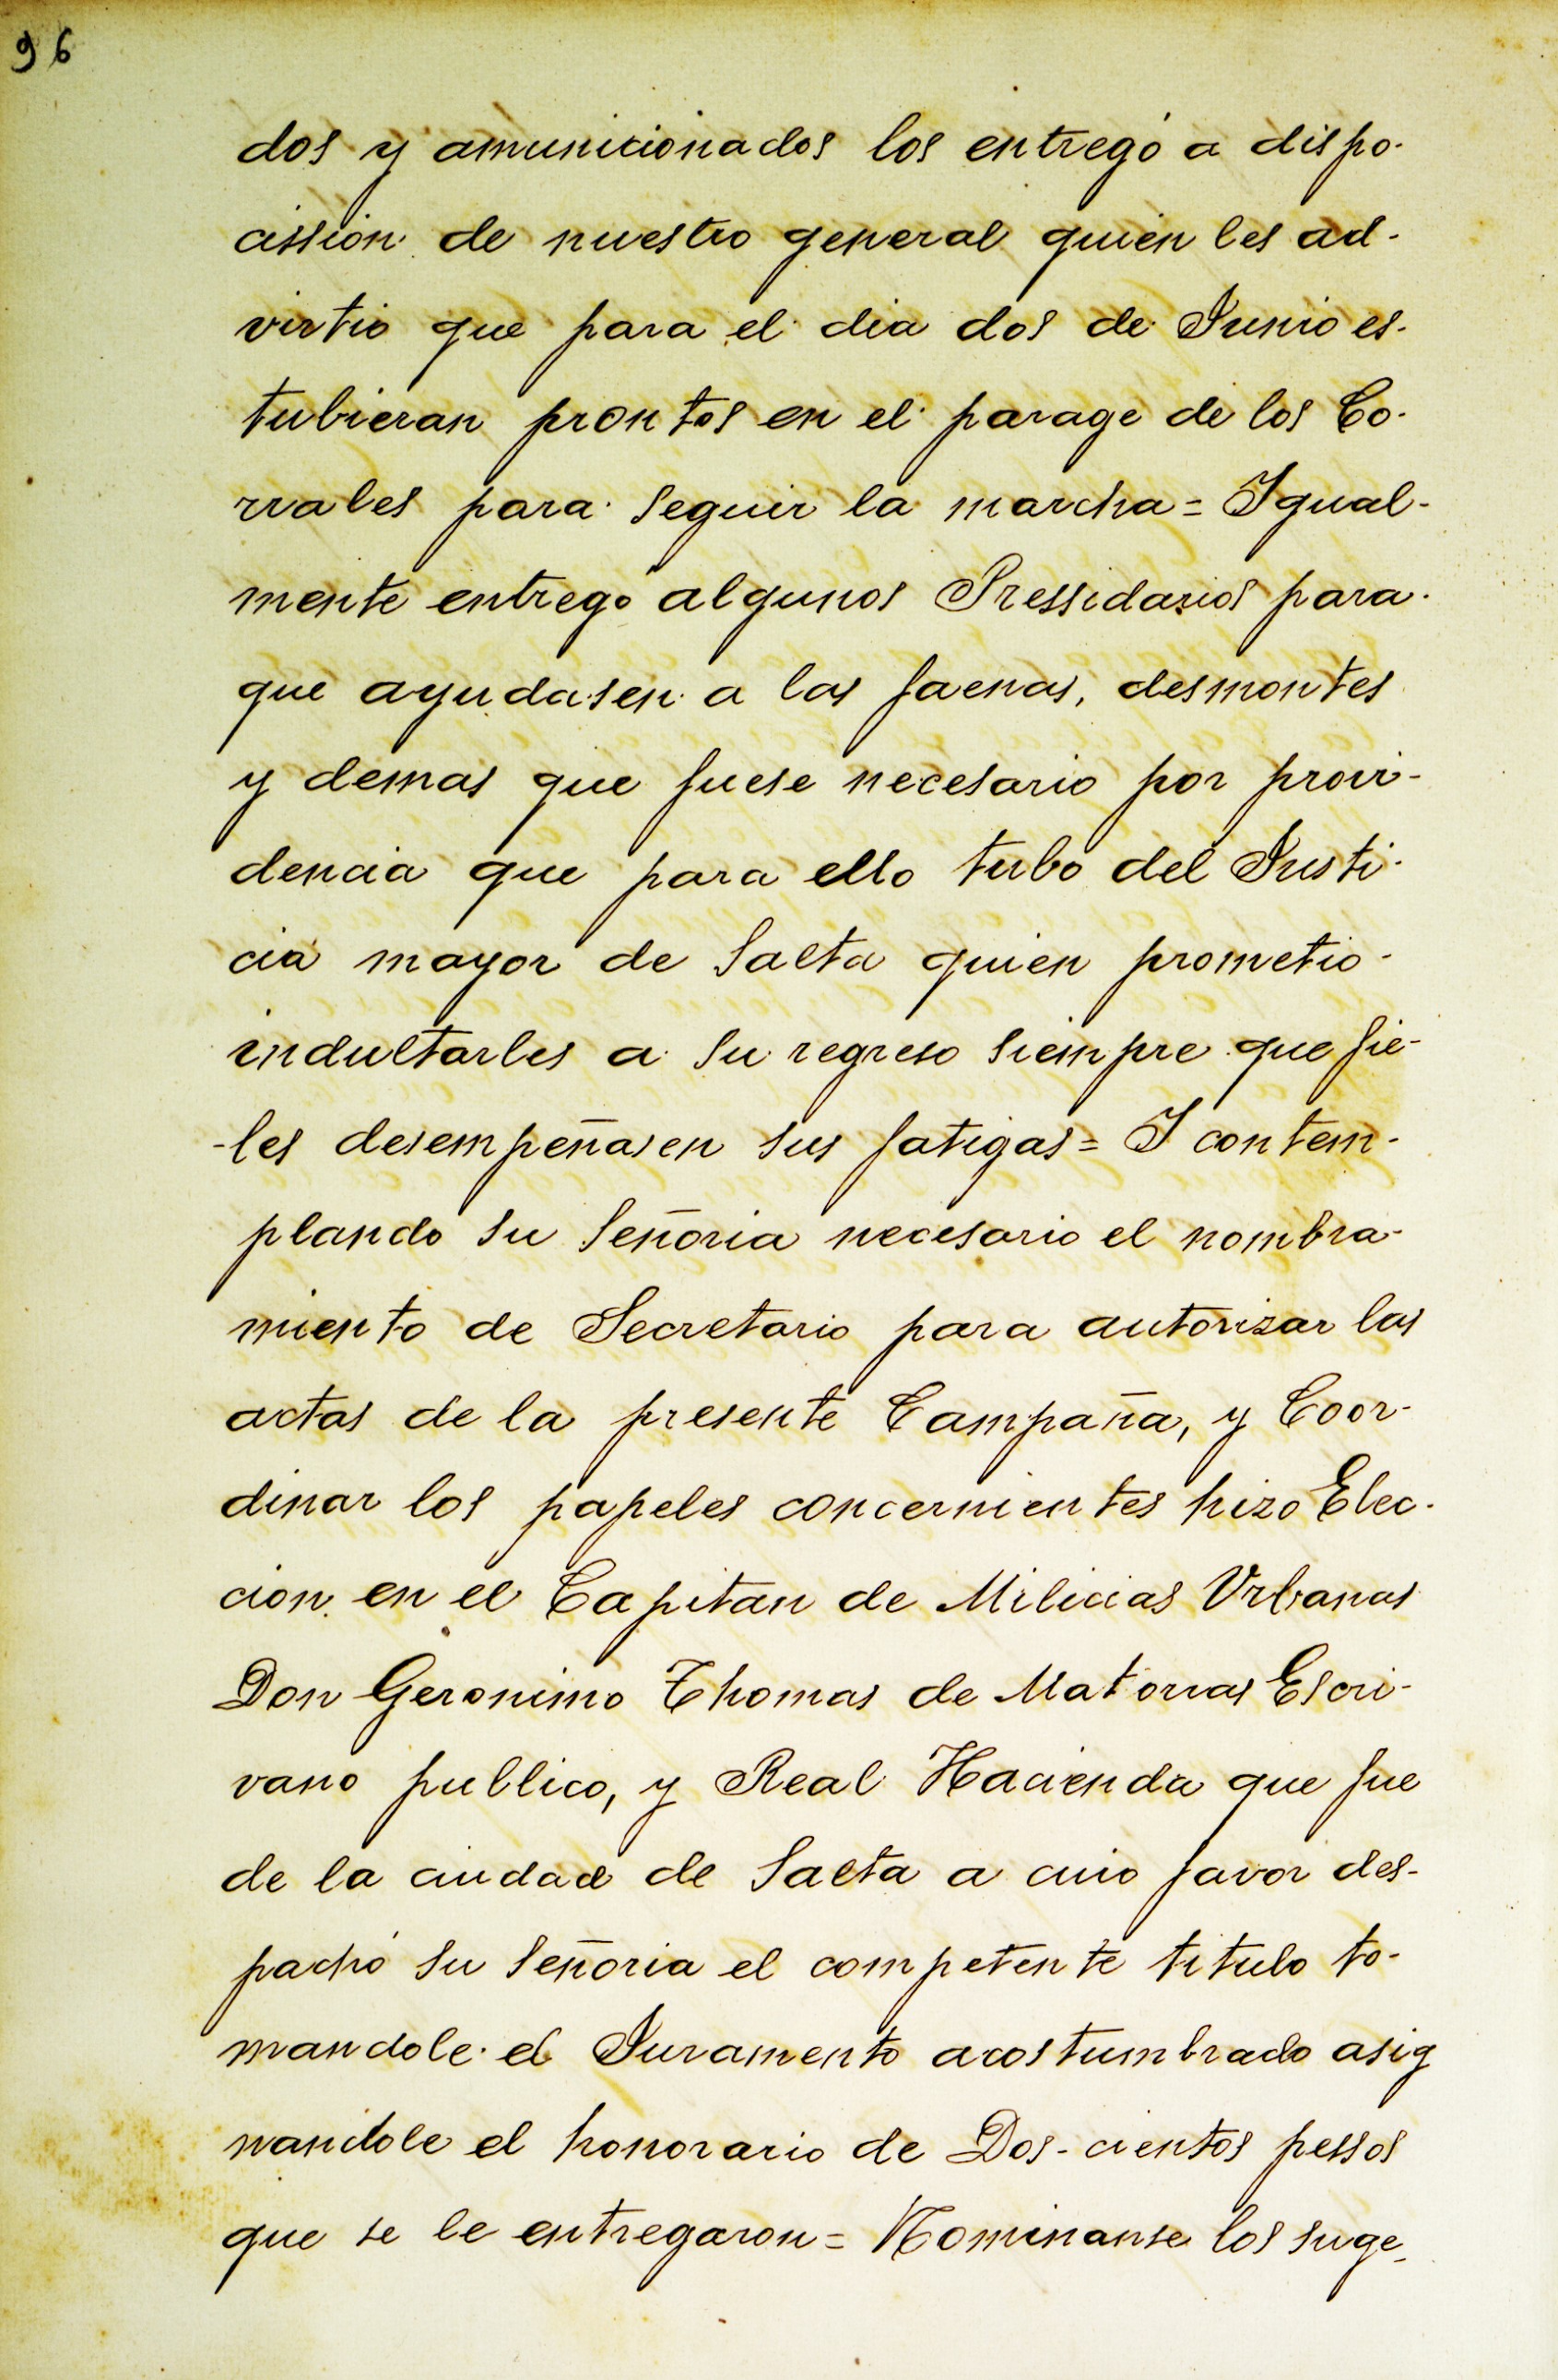 96
dos y amunicionados los entregó a dispo-
cission de nuestro general quien les ad-
virtio que para el dia dos de Junio es-
tubieran prontos en el parage de los Co-
rrales para seguir la marcha = Igual-
mente entregó algunos Pressidarios para
que ayudasen a las faenas, desmontes
y demas que fuese necesario por provi-
dencia que para ello tubo del Justi-
cia mayor de Salta quien prometio-
indultarles a su regreso siempre que fie-
-les desempeñasen sus fatigas = I contem-
plando su Señoria necesario el nombra-
miento de Secretario para autorizar las
actas de la presente Campaña, y Coor-
dinar los papeles concernientes hizo Elec-
cion en el Capitan de Milicias Vrbanas
Don Geronimo Thomas de Matorras Escri-
vano publico, y Real Hacienda que fue
de la ciudad de Salta a cuio favor des-
pachó su Señoria el competente titulo to-
mandole el Juramento acostumbrado asig
nandole el honorario de Dos-cientos pessos
que se le entregaron = Nominanse los suge-